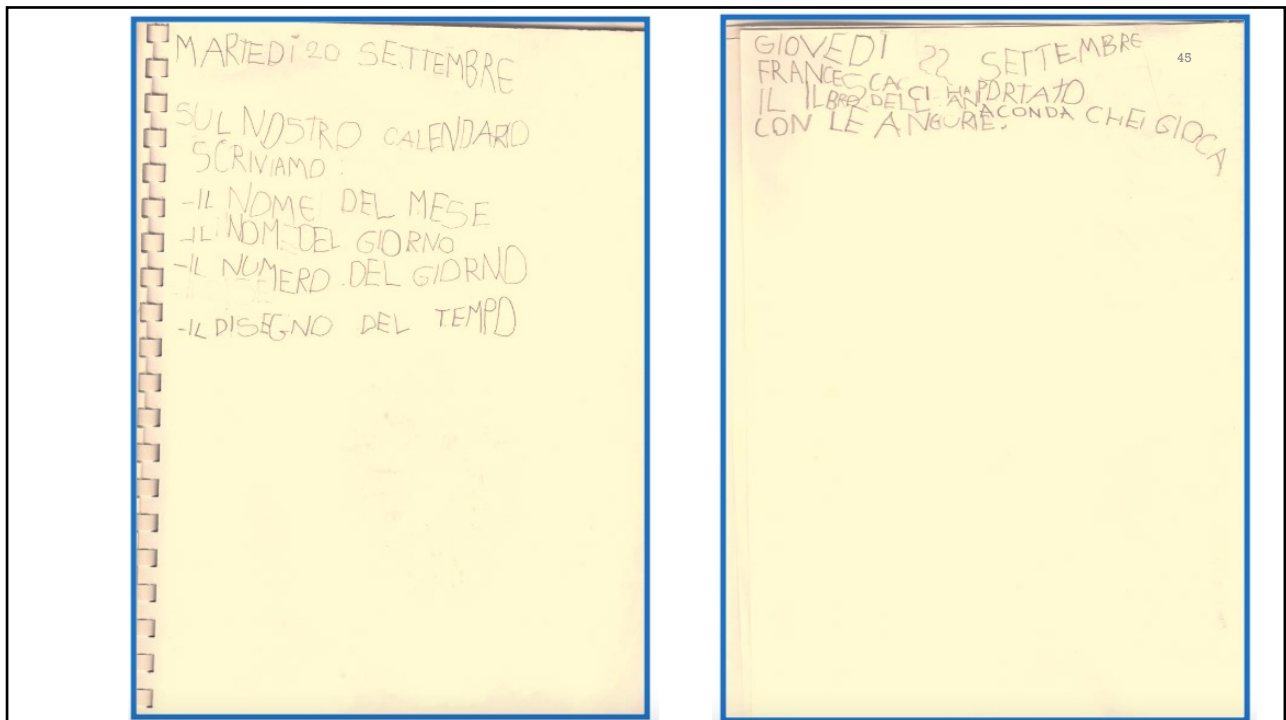 MARTEDÌ 20 SETTEMBRE
SUL NOSTRO CALENDARIO
SCRIVIAMO:
-IL NOME DEL MESE
-IL NOM DEL GIORNO
-IL NUMERO DEL GIORNO
-IL DISEGNO DEL TEMPO
45
GIOVEDÌ 22 SETTEMBRE
FRANCESCA CI HA PORTATO
IL LBRO DELL'ANACONDA CHE GIOCA
CON LE ANGURIE.